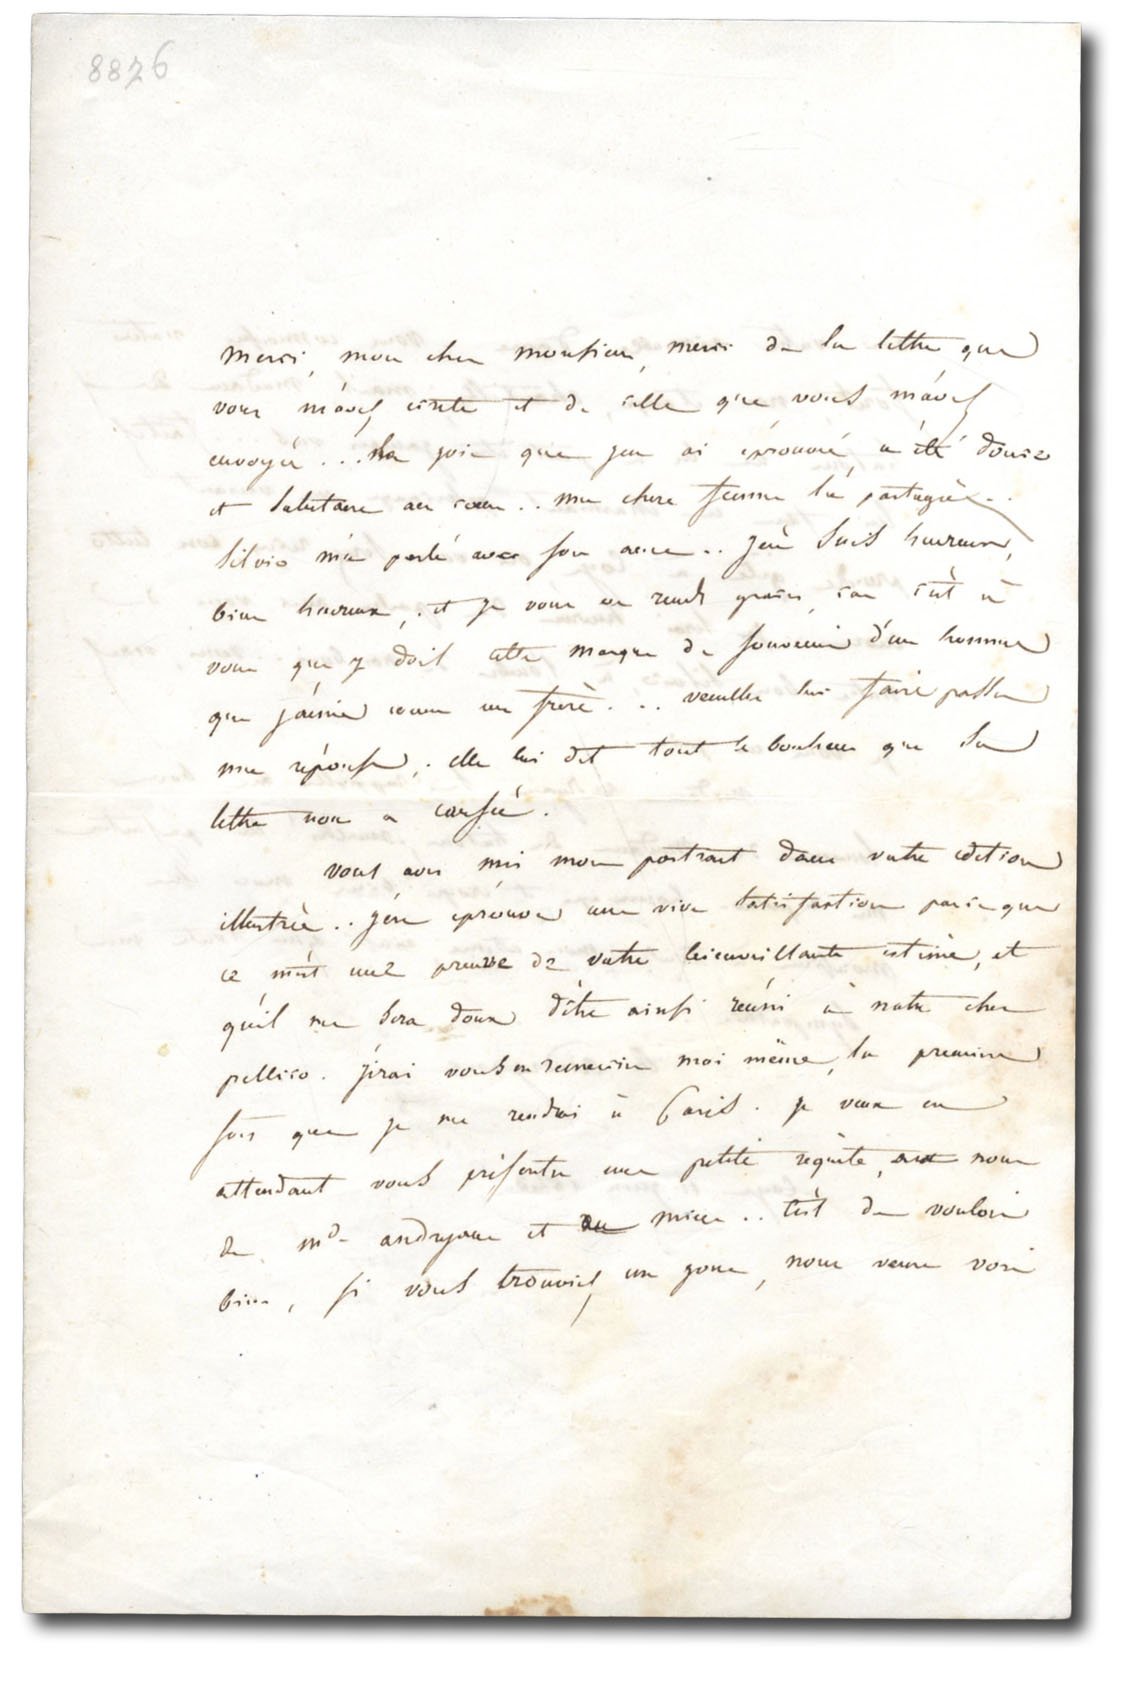 8826
merci, mon cher monsieur, merci de la lettre que
vous m'avez écrite et de celle que vous m'avez
envoyée ... la joie que j'en ai éprouvée a été douce
et salutaire au cœur .. ma chere femme l'a partagée ..
Silvio m'a parlé avec son ame .. j'en suis heureux,
bien heureux, et je vous en rends graces, car c'est à
vous que je dois cette marque de souvenir d'un homme
que j'aime comme un frère ... veuillez lui faire passer
ma réponse; elle lui dit tout le bonheur que sa
lettre nous a causé.
vous avez mis mon portrait dans votre édition
illustrée .. j'en éprouve une vive satisfaction parceque
ce m'est une preuve de votre bienveillante estime, et
qu'il me sera doux d'être ainsi réuni à notre cher
pellico. j'irai vous en remercier moi même, la premiere
fois que je me rendrai à Paris. je veux en
attendant vous présenter une petite requête, au nom
de md. andryane et au mien .. c'est de vouloir
bien, si vous trouviez un jour, nous venir voir